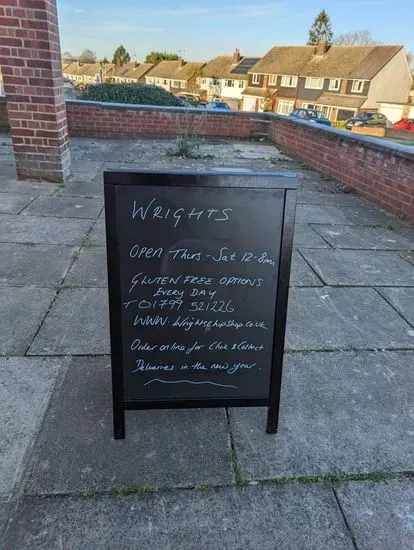 WRIGHTS
OPEN Thurs - Sat 12-8pm
GLUTEN FREE OPTIONS
EVERY DAY
T 01799 521226
WWW.Wrightschipshop.co.uk
Order online for Click & Collect
Deliveries in the new year.